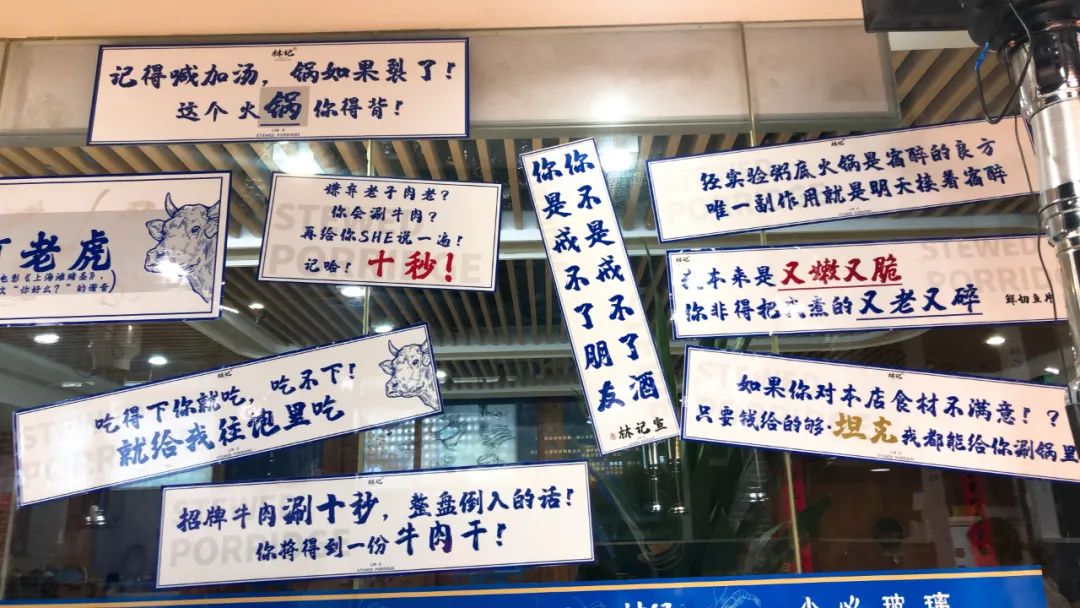 林记
记得喊加汤，锅如果裂了！
这个火锅你得背！
LIN JI
STEWED PORRIDGE
老虎
电影《上海滩赌圣》，
"你好么？"的谐音
嫌弃老子肉老？
你会涮牛肉？
再给你SHE说一遍！
记哈！十秒！
你不是戒不了酒
你是戒不了朋友
林记宣
经实验粥底火锅是宿醉的良方
唯一副作用就是明天接着宿醉
林记
我本来是又嫩又脆
你非得把我煮的又老又碎
鲜切鱼片
林记
如果你对本店食材不满意！？
只要钱给的够·坦克我都能给你涮锅里
吃得下你就吃，吃不下！
就给我往饱里吃
林记
招牌牛肉涮十秒，整盘倒入的话！
你将得到一份牛肉干！
LIN JI
STEWED PORRIDGE
林记
小心玻璃